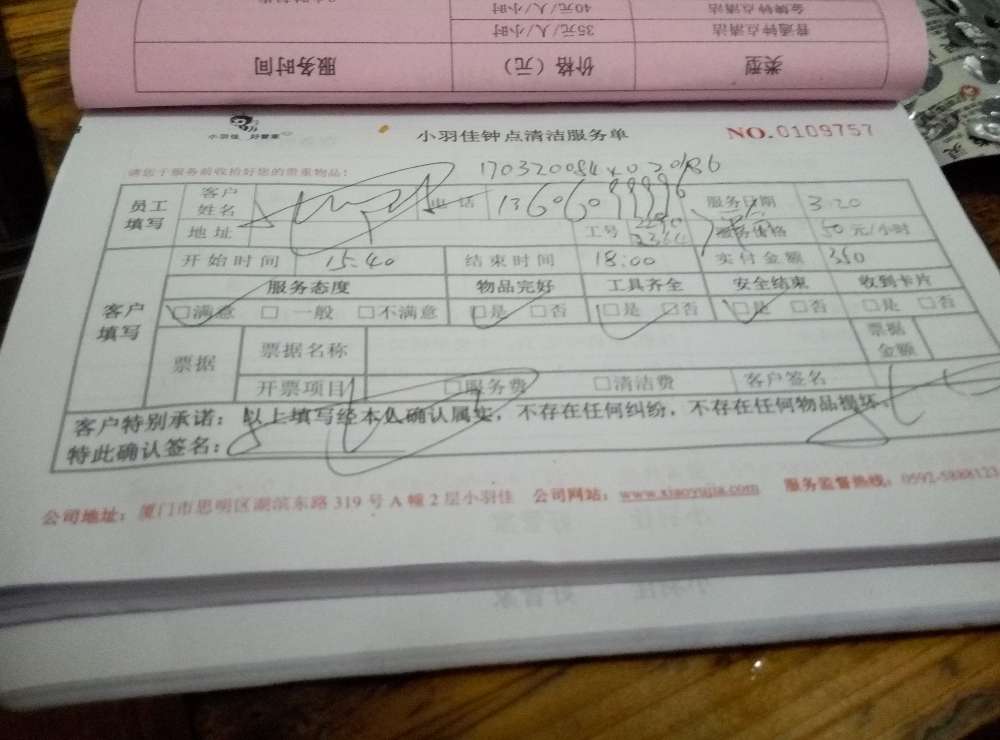 金牌钟点清洁 40元/人/小时
普通钟点清洁 35元/人/小时
类型 价格（元） 服务时间
小羽佳 好管家
小羽佳钟点清洁服务单 NO.0109757
请您于服务前收拾好您的贵重物品！
员工填写 客户姓名 电话 服务日期 3.20
地址 工号 服务价格 50元/小时
客户填写 开始时间 15:40 结束时间 18:00 实付金额 350
服务态度 物品完好 工具齐全 安全结束 收到卡片
□满意 □一般 □不满意 □是 □否 □是 □否 □是 □否 □是 □否
票据 票据名称 票据金额
开票项目 □服务费 □清洁费 客户签名
客户特别承诺：以上填写经本人确认属实，不存在任何纠纷，不存在任何物品损坏。
特此确认签名：
公司地址：厦门市思明区湖滨东路 319 号 A 幢 2 层小羽佳 公司网站：www.xiaoyujia.com 服务监督热线：0592-5888123